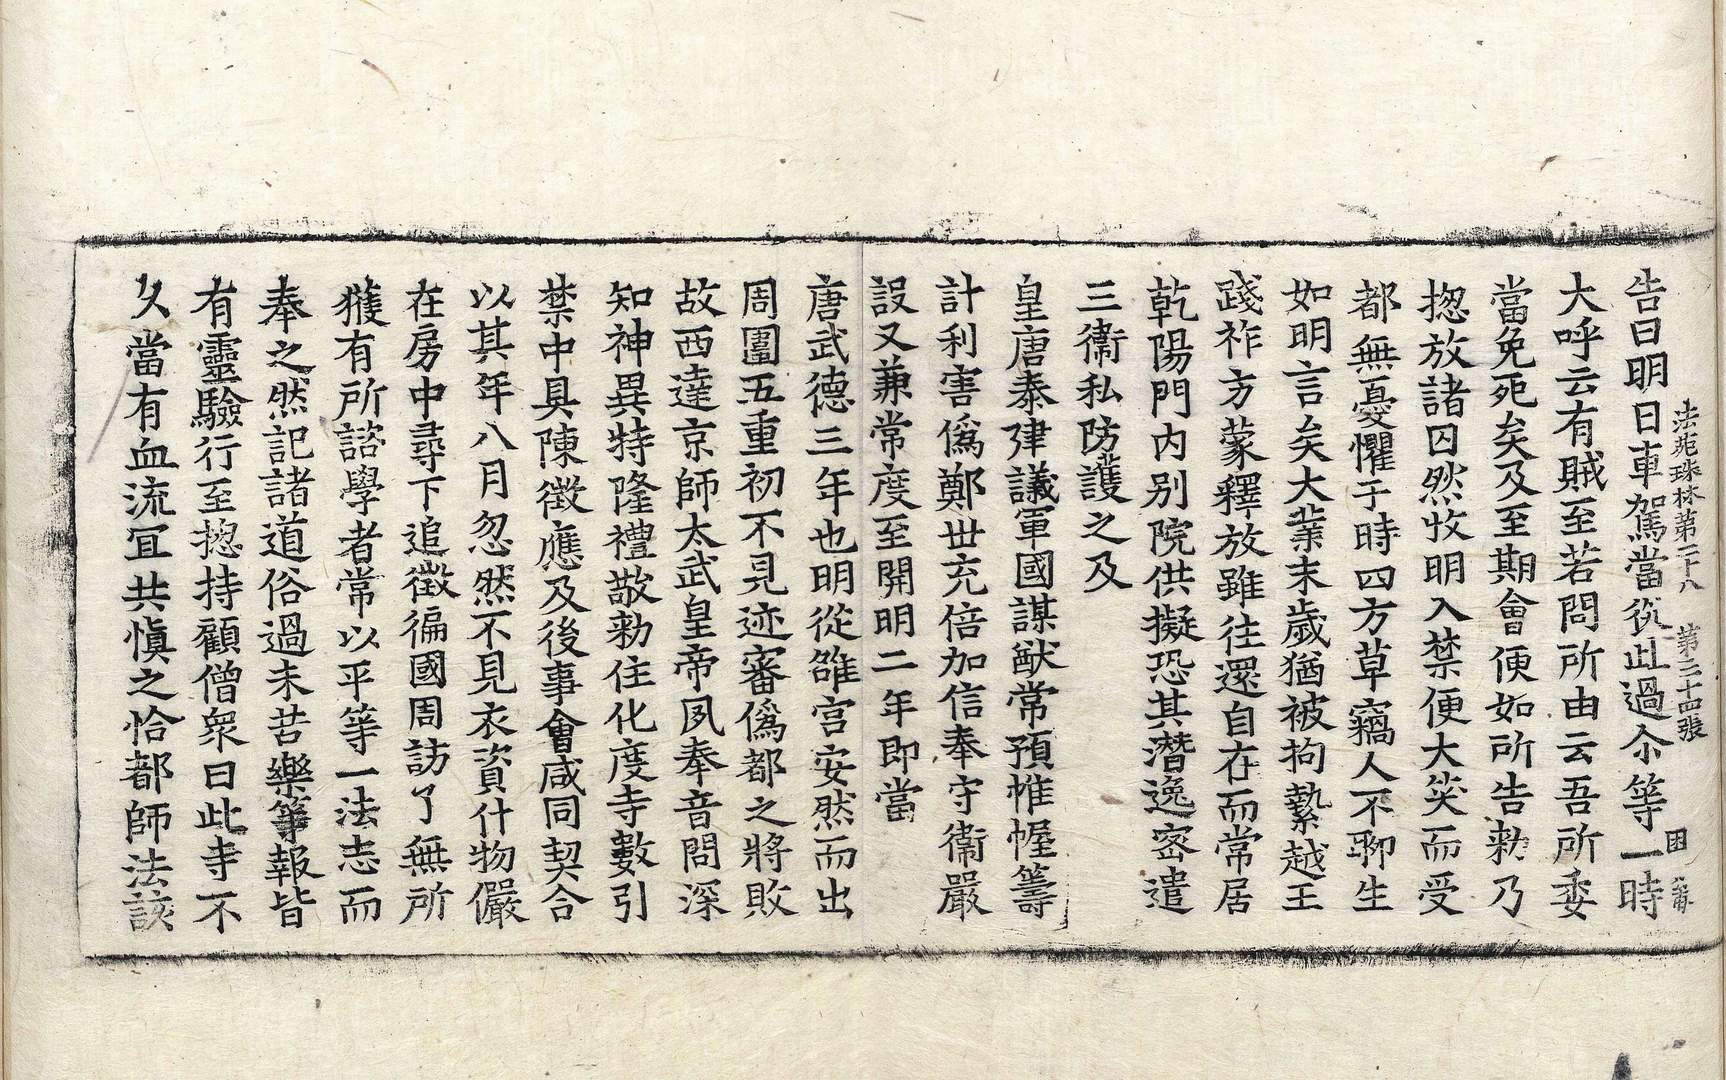 法苑珠林第二十八　第三十四張　困
告曰明日車駕當從此過尒等一時
大呼云有賊至若問所由云吾所委
當免死矣及至期會便如所告勑乃
揔放諸囚然收明入禁便大笑而受
都無憂懼于時四方草竊人不聊生
如明言矣大業末歲猶被拘縶越王
踐祚方蒙釋放雖往還自在而常居
乾陽門內別院供擬恐其潛逸密遣
三衛私防護之及
皇唐泰建議軍國謀猷常預帷幄籌
計利害偽鄭世充倍加信奉守衛嚴
設又兼常度至開明二年即當
唐武德三年也明從雒宮安然而出
周圍五重初不見迹審偽都之將敗
故西達京師太武皇帝夙奉音問深
知神異特隆禮敬勑住化度寺數引
禁中具陳徵應及後事會咸同契合
以其年八月忽然不見衣資什物儼
在房中尋下追徵徧國周訪了無所
獲有所諮學者常以平等一法志而
奉之然記諸道俗過未苦樂等報皆
有靈驗行至揔持顧僧眾曰此寺不
久當有血流宜共慎之恰都師法該